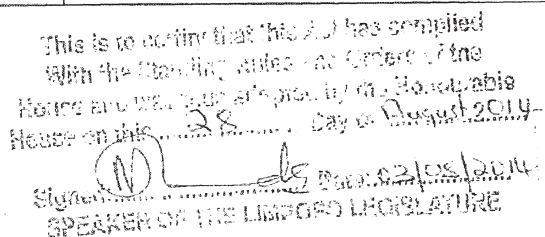 This is to certify that this Act has complied
With the Standing Rules and Orders of the
House and was duly adopted by the Honourable
House on this 28 Day of August 2014
Signed Date: 03/08/2014
SPEAKER OF THE LIMPOPO LEGISLATURE